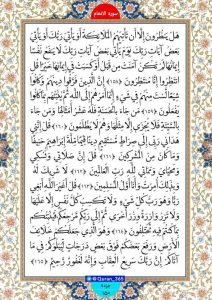 سورة الانعام
هَلْ يَنظُرُونَ إِلَّا أَن تَأْتِيَهُمُ الْمَلَائِكَةُ أَوْ يَأْتِيَ رَبُّكَ أَوْ يَأْتِيَ
بَعْضُ آيَاتِ رَبِّكَ يَوْمَ يَأْتِي بَعْضُ آيَاتِ رَبِّكَ لَا يَنفَعُ نَفْسًا
إِيمَانُهَا لَمْ تَكُنْ آمَنَتْ مِن قَبْلُ أَوْ كَسَبَتْ فِي إِيمَانِهَا خَيْرًا قُلِ
انتَظِرُوا إِنَّا مُنتَظِرُونَ ﴿١٥٨﴾ إِنَّ الَّذِينَ فَرَّقُوا دِينَهُمْ وَكَانُوا
شِيَعًا لَّسْتَ مِنْهُمْ فِي شَيْءٍ إِنَّمَا أَمْرُهُمْ إِلَى اللَّهِ ثُمَّ يُنَبِّئُهُم بِمَا كَانُوا
يَفْعَلُونَ ﴿١٥٩﴾ مَن جَاءَ بِالْحَسَنَةِ فَلَهُ عَشْرُ أَمْثَالِهَا وَمَن جَاءَ
بِالسَّيِّئَةِ فَلَا يُجْزَىٰ إِلَّا مِثْلَهَا وَهُمْ لَا يُظْلَمُونَ ﴿١٦٠﴾ قُلْ إِنَّنِي
هَدَانِي رَبِّي إِلَىٰ صِرَاطٍ مُّسْتَقِيمٍ دِينًا قِيَمًا مِّلَّةَ إِبْرَاهِيمَ حَنِيفًا
وَمَا كَانَ مِنَ الْمُشْرِكِينَ ﴿١٦١﴾ قُلْ إِنَّ صَلَاتِي وَنُسُكِي
وَمَحْيَايَ وَمَمَاتِي لِلَّهِ رَبِّ الْعَالَمِينَ ﴿١٦٢﴾ لَا شَرِيكَ لَهُ
وَبِذَٰلِكَ أُمِرْتُ وَأَنَا أَوَّلُ الْمُسْلِمِينَ ﴿١٦٣﴾ قُلْ أَغَيْرَ اللَّهِ أَبْغِي
رَبًّا وَهُوَ رَبُّ كُلِّ شَيْءٍ وَلَا تَكْسِبُ كُلُّ نَفْسٍ إِلَّا عَلَيْهَا
وَلَا تَزِرُ وَازِرَةٌ وِزْرَ أُخْرَىٰ ثُمَّ إِلَىٰ رَبِّكُم مَّرْجِعُكُمْ فَيُنَبِّئُكُم
بِمَا كُنتُمْ فِيهِ تَخْتَلِفُونَ ﴿١٦٤﴾ وَهُوَ الَّذِي جَعَلَكُمْ خَلَائِفَ
الْأَرْضِ وَرَفَعَ بَعْضَكُمْ فَوْقَ بَعْضٍ دَرَجَاتٍ لِّيَبْلُوَكُمْ فِي مَا
آتَاكُمْ إِنَّ رَبَّكَ سَرِيعُ الْعِقَابِ وَإِنَّهُ لَغَفُورٌ رَّحِيمٌ ﴿١٦٥﴾
@Quran_365
۱۵۰